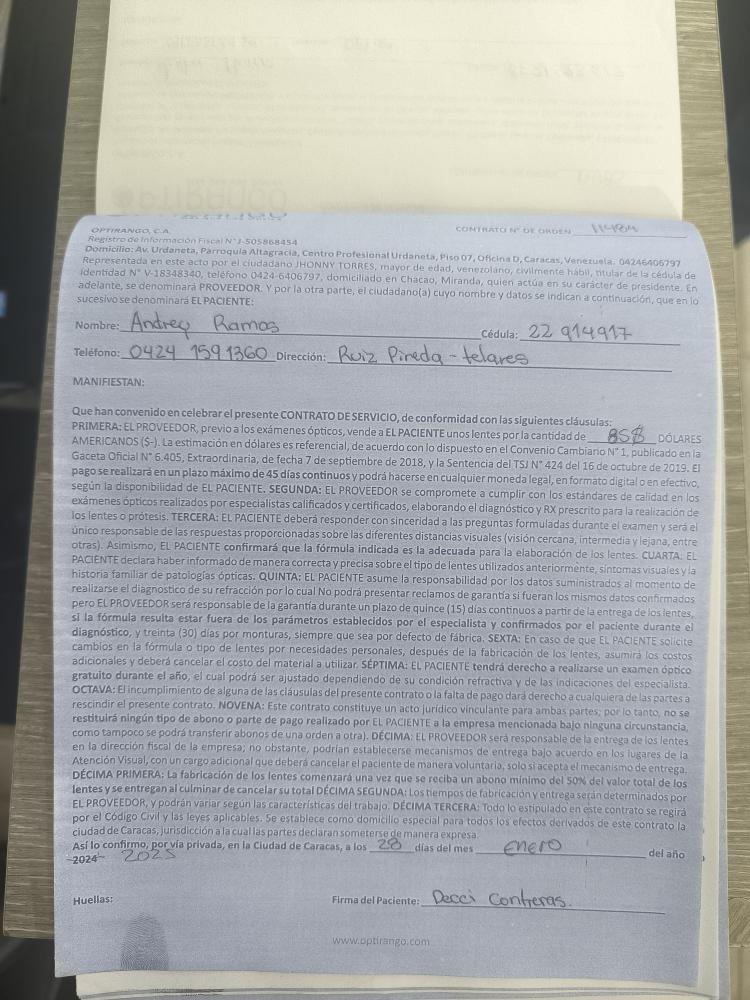 OPTIRANGO, C.A.
CONTRATO N° DE ORDEN
Registro de Información Fiscal N°J-505868454
Domicilio: Av. Urdaneta, Parroquia Altagracia, Centro Profesional Urdaneta, Piso 07, Oficina D, Caracas, Venezuela. 04246406797
Representada en este acto por el ciudadano JHONNY TORRES, mayor de edad, venezolano, civilmente hábil, titular de la cédula de
identidad N° V-18348340, teléfono 0424-6406797, domiciliado en Chacao, Miranda, quien actúa en su carácter de presidente. En
adelante, se denominará PROVEEDOR. Y por la otra parte, el ciudadano(a) cuyo nombre y datos se indican a continuación, que en lo
sucesivo se denominará EL PACIENTE:
Nombre: Andrey Ramos Cédula: 22 914917
Teléfono: 0424 1591360 Dirección: Ruiz Pineda - telares
MANIFIESTAN:
Que han convenido en celebrar el presente CONTRATO DE SERVICIO, de conformidad con las siguientes cláusulas:
PRIMERA: EL PROVEEDOR, previo a los exámenes ópticos, vende a EL PACIENTE unos lentes por la cantidad de 85$ DÓLARES
AMERICANOS ($-). La estimación en dólares es referencial, de acuerdo con lo dispuesto en el Convenio Cambiario N° 1, publicado en la
Gaceta Oficial N° 6.405, Extraordinaria, de fecha 7 de septiembre de 2018, y la Sentencia del TSJ N° 424 del 16 de octubre de 2019. El
pago se realizará en un plazo máximo de 45 días continuos y podrá hacerse en cualquier moneda legal, en formato digital o en efectivo,
según la disponibilidad de EL PACIENTE. SEGUNDA: EL PROVEEDOR se compromete a cumplir con los estándares de calidad en los
exámenes ópticos realizados por especialistas calificados y certificados, elaborando el diagnóstico y RX prescrito para la realización de
los lentes o prótesis. TERCERA: EL PACIENTE deberá responder con sinceridad a las preguntas formuladas durante el examen y será el
único responsable de las respuestas proporcionadas sobre las diferentes distancias visuales (visión cercana, intermedia y lejana, entre
otras). Asimismo, EL PACIENTE confirmará que la fórmula indicada es la adecuada para la elaboración de los lentes. CUARTA: EL
PACIENTE declara haber informado de manera correcta y precisa sobre el tipo de lentes utilizados anteriormente, síntomas visuales y la
historia familiar de patologías ópticas. QUINTA: EL PACIENTE asume la responsabilidad por los datos suministrados al momento de
realizarse el diagnostico de su refracción por lo cual No podrá presentar reclamos de garantía si fueran los mismos datos confirmados
pero EL PROVEEDOR será responsable de la garantía durante un plazo de quince (15) días continuos a partir de la entrega de los lentes,
si la fórmula resulta estar fuera de los parámetros establecidos por el especialista y confirmados por el paciente durante el
diagnóstico, y treinta (30) días por monturas, siempre que sea por defecto de fábrica. SEXTA: En caso de que EL PACIENTE solicite
cambios en la fórmula o tipo de lentes por necesidades personales, después de la fabricación de los lentes, asumirá los costos
adicionales y deberá cancelar el costo del material a utilizar. SÉPTIMA: EL PACIENTE tendrá derecho a realizarse un examen óptico
gratuito durante el año, el cual podrá ser ajustado dependiendo de su condición refractiva y de las indicaciones del especialista.
OCTAVA: El incumplimiento de alguna de las cláusulas del presente contrato o la falta de pago dará derecho a cualquiera de las partes a
rescindir el presente contrato. NOVENA: Este contrato constituye un acto jurídico vinculante para ambas partes; por lo tanto, no se
restituirá ningún tipo de abono o parte de pago realizado por EL PACIENTE a la empresa mencionada bajo ninguna circunstancia,
como tampoco se podrá transferir abonos de una orden a otra). DÉCIMA: EL PROVEEDOR será responsable de la entrega de los lentes
en la dirección fiscal de la empresa; no obstante, podrían establecerse mecanismos de entrega bajo acuerdo en los lugares de la
Atención Visual, con un cargo adicional que deberá cancelar el paciente de manera voluntaria, solo si acepta el mecanismo de entrega.
DÉCIMA PRIMERA: La fabricación de los lentes comenzará una vez que se reciba un abono mínimo del 50% del valor total de los
lentes y se entregan al culminar de cancelar su total DÉCIMA SEGUNDA: Los tiempos de fabricación y entrega serán determinados por
EL PROVEEDOR, y podrán variar según las características del trabajo. DÉCIMA TERCERA: Todo lo estipulado en este contrato se regirá
por el Código Civil y las leyes aplicables. Se establece como domicilio especial para todos los efectos derivados de este contrato la
ciudad de Caracas, jurisdicción a la cual las partes declaran someterse de manera expresa.
Así lo confirmo, por vía privada, en la Ciudad de Caracas, a los 28 días del mes enero del año
2024 2025
Huellas:
Firma del Paciente: Decci Contreras.
www.optirango.com